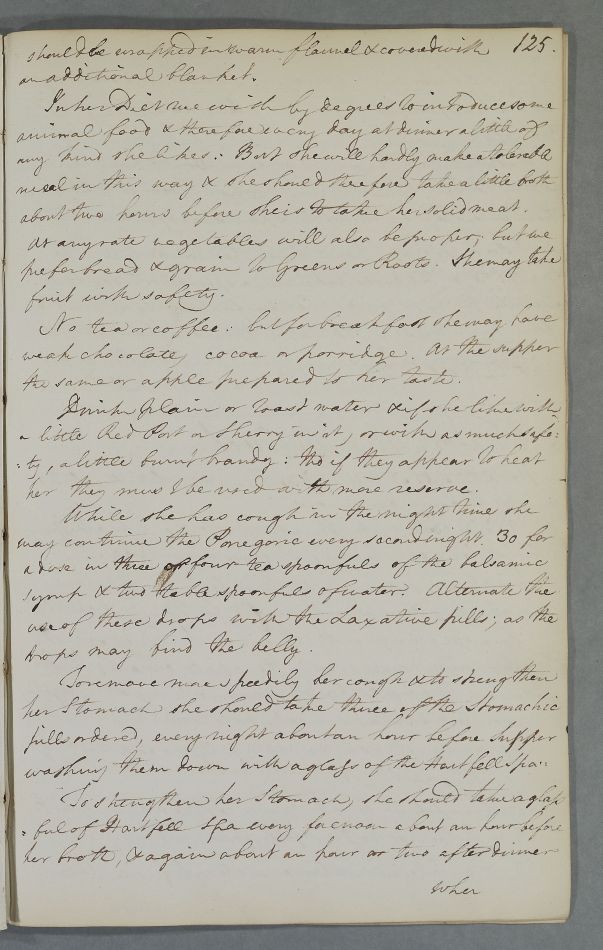 should be wrapped in warm flannel & covered with 125.
an additional blanket.
In her Diet we wish by degrees to introduce some
animal food & therefore every day at dinner a little of
any kind she likes: But she will hardly make a tolerable
meal in this way & she should therefore take a little broth
about two hours before she is to take her solid meat.
At any rate vegetables will also be proper; but we
prefer bread & grain to Greens or Roots. She may take
fruit with safety.
No tea or coffee: but for breakfast she may have
weak chocolate, cocoa or porridge. At the supper
the same or apple prepared to her taste.
Drink plain or toast water & if she like with
a little Red Port or Sherry in it, or with as much safe:
:ty, a little burnt brandy: tho if they appear to heat
her they must be used with more reserve.
While she has cough in the night time she
may continue the Paregoric every second night. 30 for
a dose in three or four tea spoonfuls of the balsamic
syrup & two table spoonfuls of water. Alternate the
use of these drops with the Laxative pills; as the
drops may bind the belly.
To remove more speedily her cough & to strengthen
her Stomach she should take three of the Stomachic
pills ordered, every night about an hour before Supper
washing them down with a glass of the Hartfell Spa:-
To strengthen her Stomach, she should take a glass
:ful of Hartfell Spa every forenoon about an hour before
her broth, & again about an hour or two after dinner
when